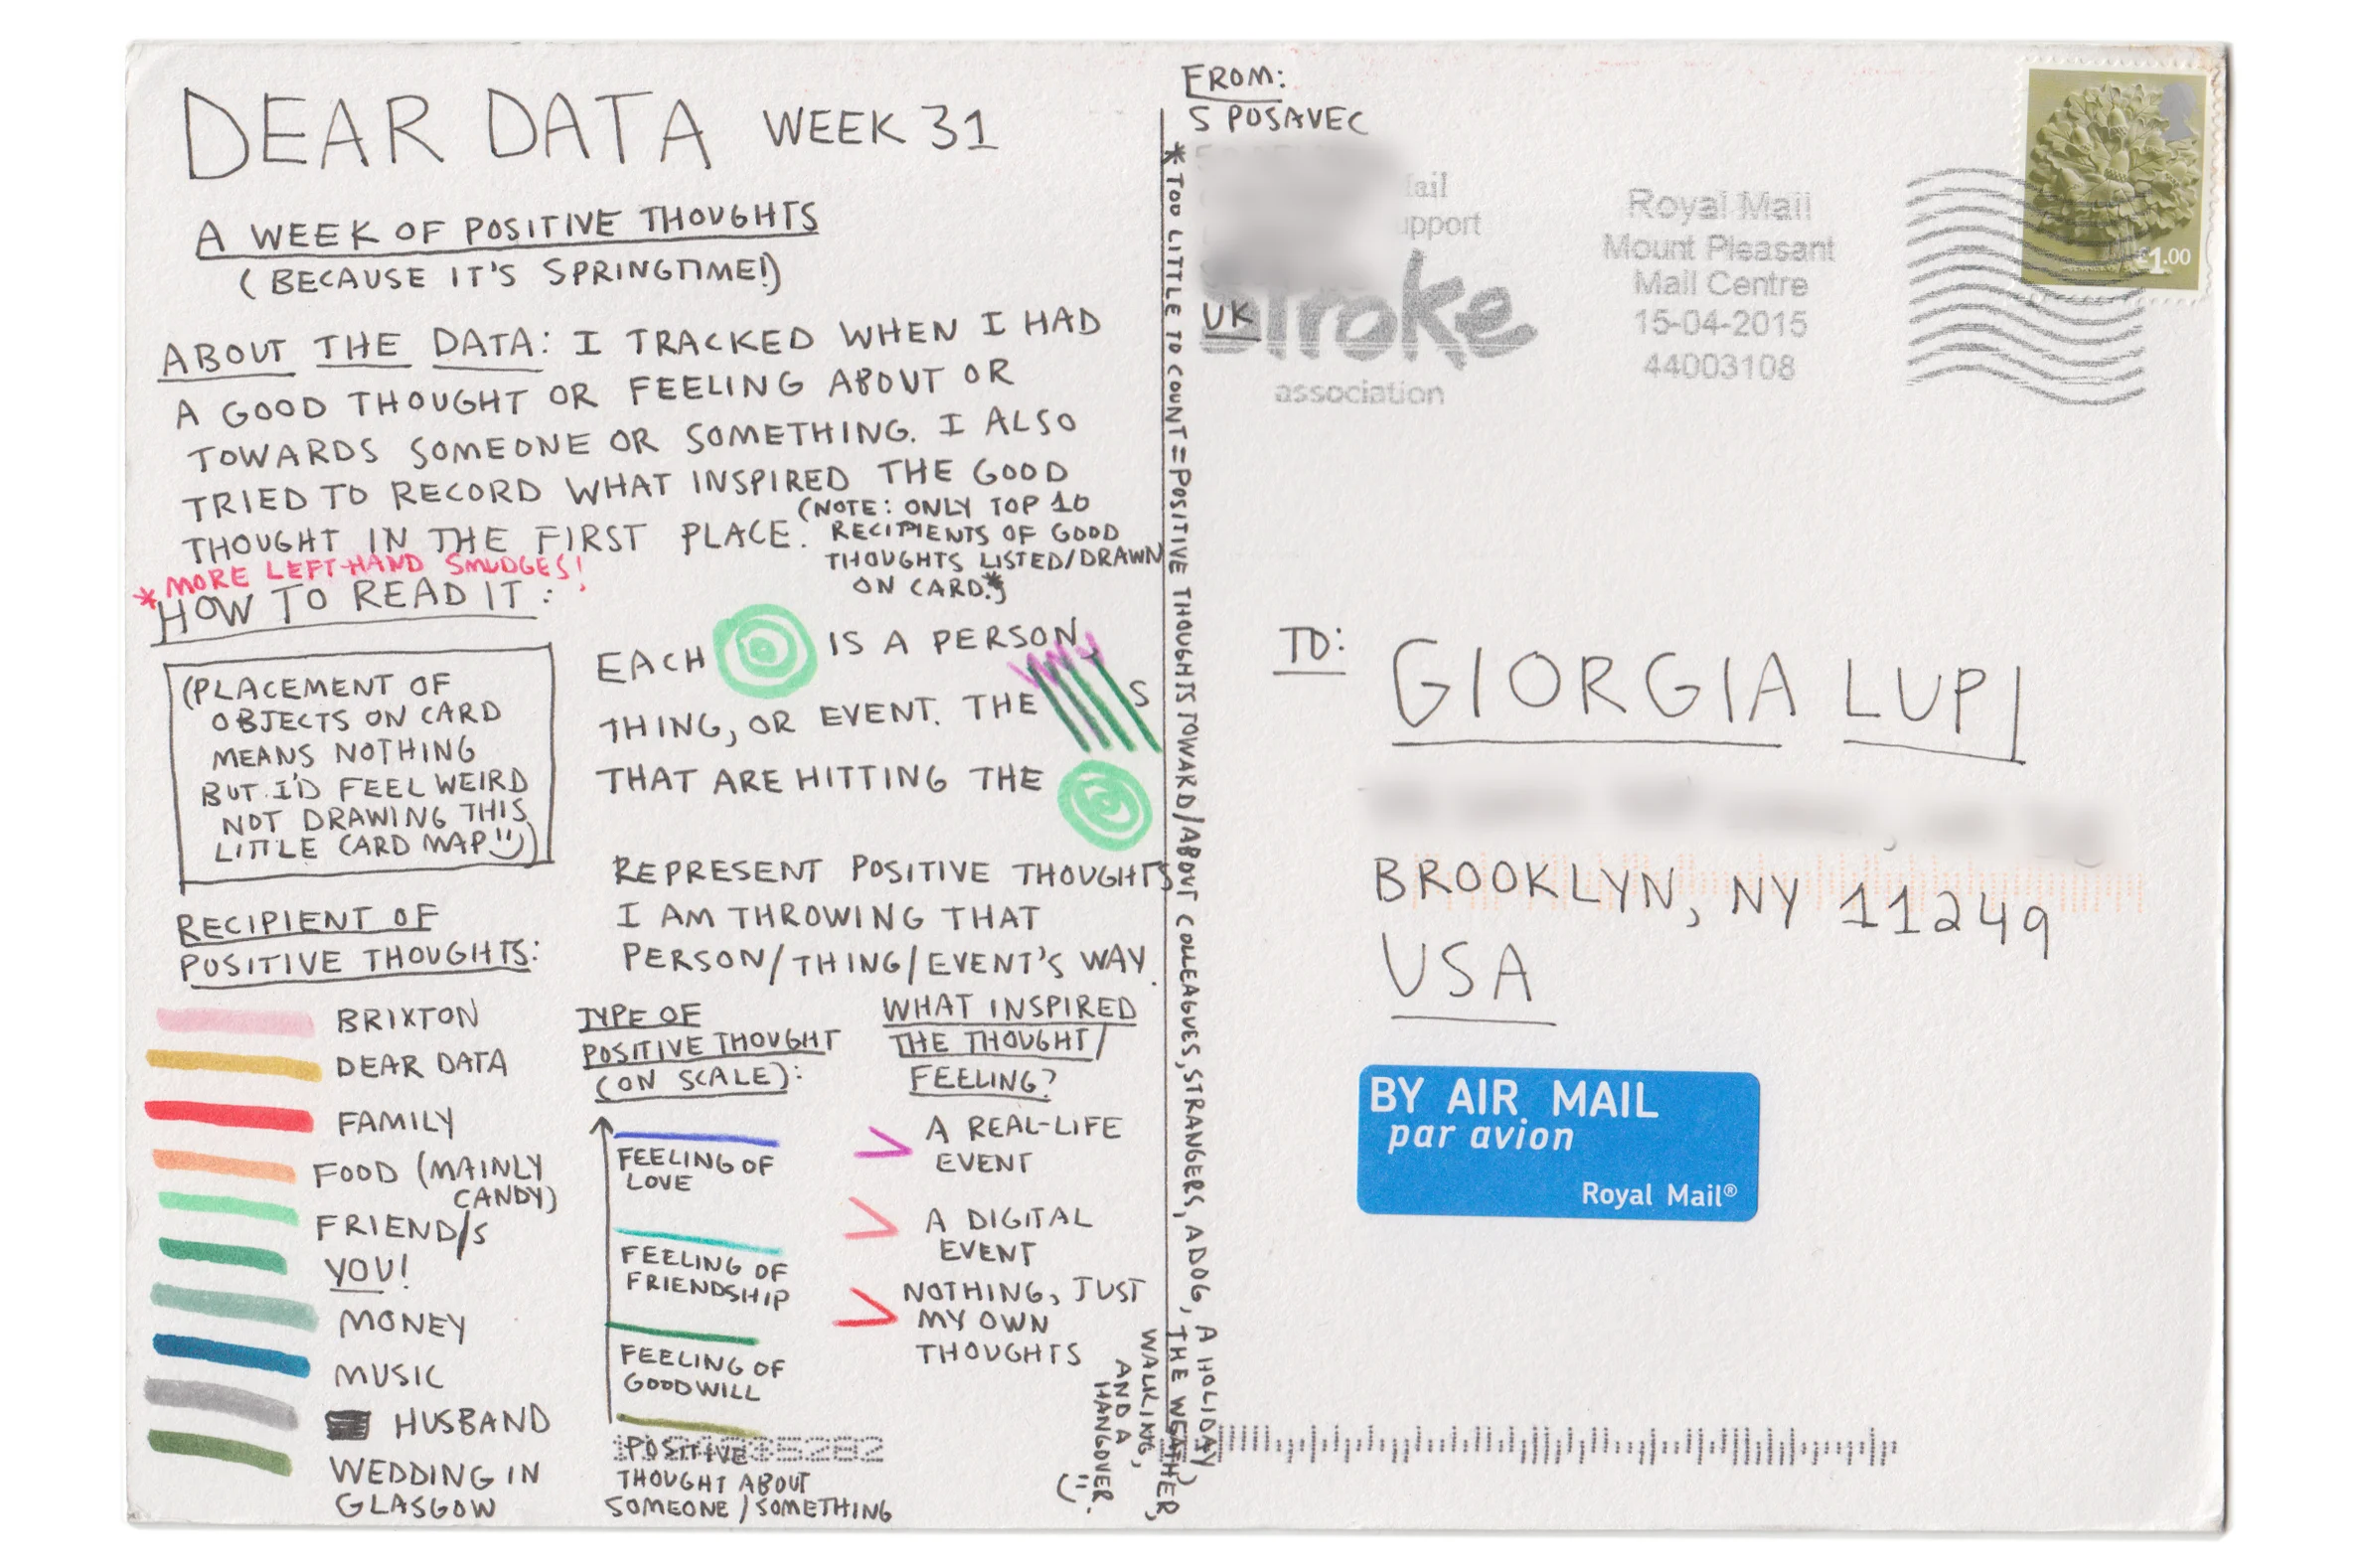 DEAR DATA WEEK 31
A WEEK OF POSITIVE THOUGHTS
(BECAUSE IT'S SPRINGTIME!)
ABOUT THE DATA: I TRACKED WHEN I HAD
A GOOD THOUGHT OR FEELING ABOUT OR
TOWARDS SOMEONE OR SOMETHING. I ALSO
TRIED TO RECORD WHAT INSPIRED THE GOOD
THOUGHT IN THE FIRST PLACE.
(NOTE: ONLY TOP 10
RECIPIENTS OF GOOD
THOUGHTS LISTED/DRAWN
ON CARD.*)
*MORE LEFT-HAND SMUDGES!
HOW TO READ IT:
(PLACEMENT OF
OBJECTS ON CARD
MEANS NOTHING
BUT I'D FEEL WEIRD
NOT DRAWING THIS
LITTLE CARD MAP!)
EACH IS A PERSON,
THING, OR EVENT. THE S
THAT ARE HITTING THE
REPRESENT POSITIVE THOUGHTS
I AM THROWING THAT
PERSON/THING/EVENT'S WAY.
RECIPIENT OF
POSITIVE THOUGHTS:
BRIXTON
DEAR DATA
FAMILY
FOOD (MAINLY
CANDY)
FRIEND/S
YOU!
MONEY
MUSIC
HUSBAND
WEDDING IN
GLASGOW
TYPE OF
POSITIVE THOUGHT
(ON SCALE):
FEELING OF
LOVE
FEELING OF
FRIENDSHIP
FEELING OF
GOODWILL
POSITIVE
THOUGHT ABOUT
SOMEONE/SOMETHING
WHAT INSPIRED
THE THOUGHT/
FEELING?
A REAL-LIFE
EVENT
A DIGITAL
EVENT
NOTHING, JUST
MY OWN
THOUGHTS
*TOO LITTLE TO COUNT = POSITIVE THOUGHTS TOWARD/ABOUT COLLEAGUES, STRANGERS, A DOG, A HOLIDAY,
THE WEATHER,
WALKING,
AND A
HANGOVER.
FROM:
S POSAVEC
UK
stroke
association
Royal Mail
Mount Pleasant
Mail Centre
15-04-2015
44003108
£1.00
TO:
GIORGIA LUPI
BROOKLYN, NY 11249
USA
BY AIR MAIL
par avion
Royal Mail®